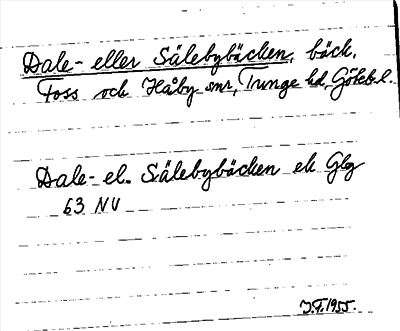 Dale- eller Sälebybäcken, bäck,
Foss och Håby snr, Tunge hd, Göteb l.
Dale- el. Sälebybäcken ek Gbg
63 NV
J.F. 1955.